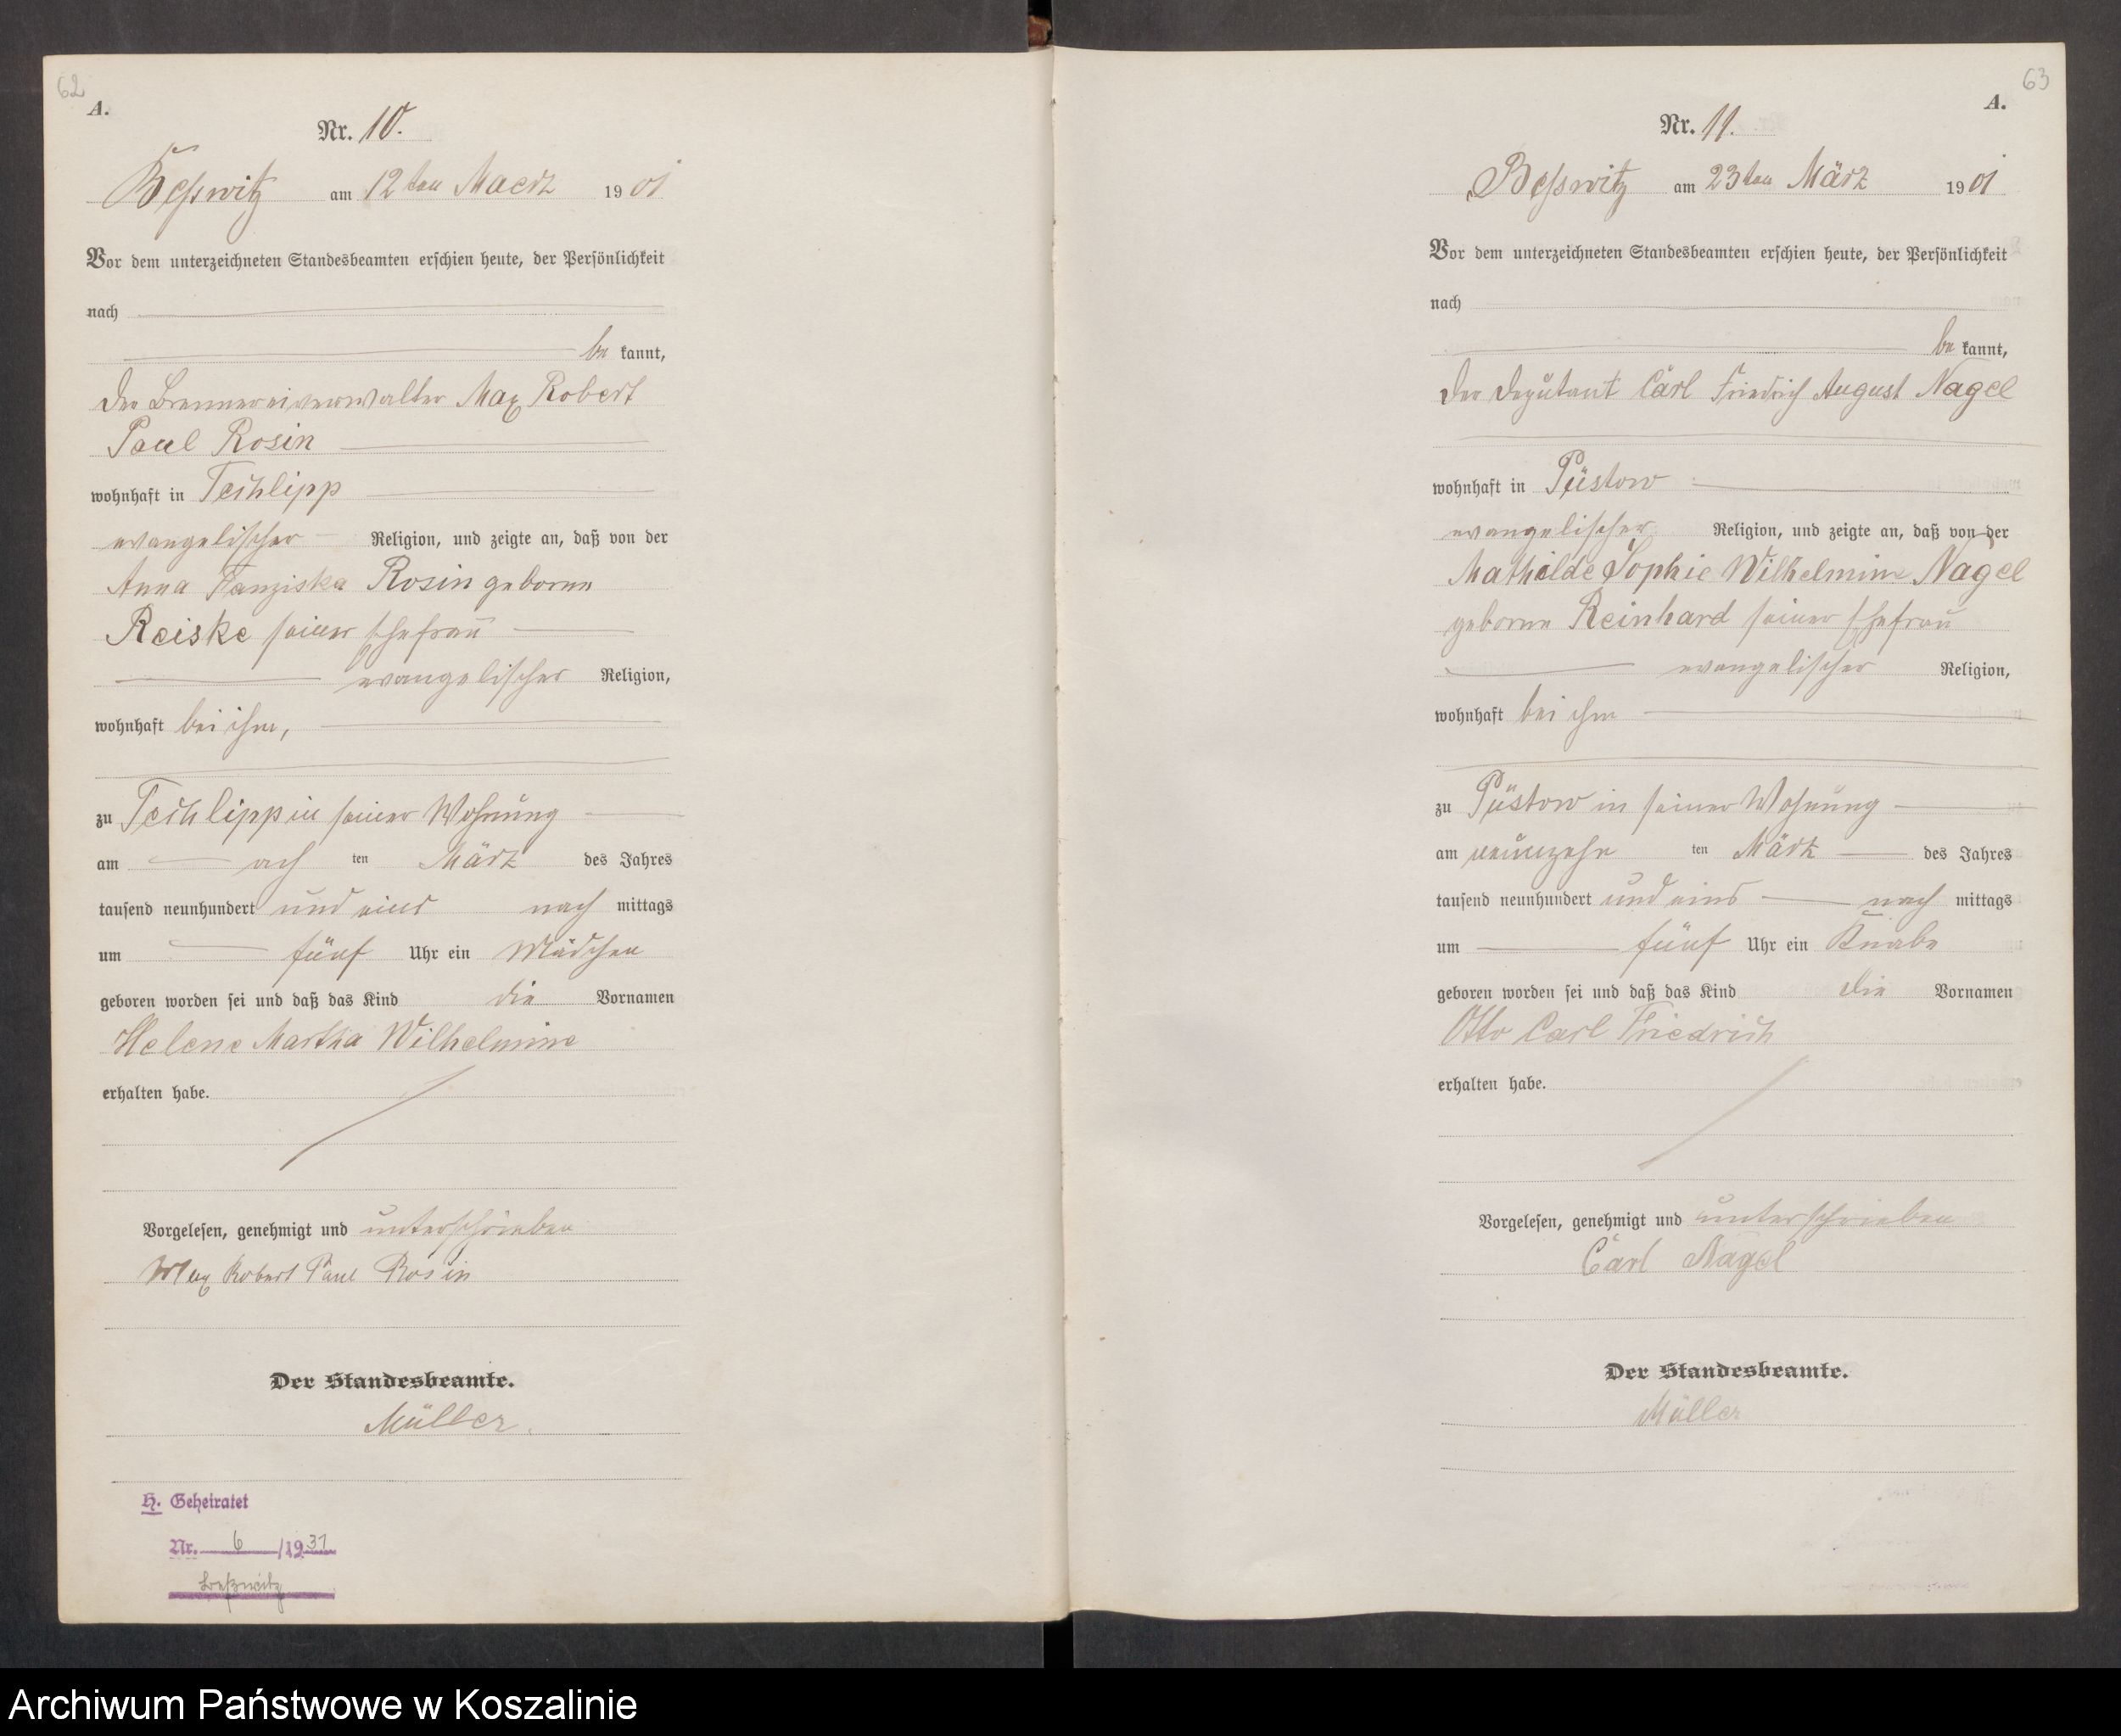 62
A.
Nr. 10.
Beßwitz am 12ten Maerz 1901
Vor dem unterzeichneten Standesbeamten erschien heute, der Persönlichkeit
nach
be kannt,
der Brennereiverwalter Max Robert
Paul Rosin
wohnhaft in Techlipp
evangelischer Religion, und zeigte an, daß von der
Anna Franziska Rosin geborne
Reiske seiner Ehefrau
evangelischer Religion,
wohnhaft bei ihm,
zu Techlipp in seiner Wohnung
am ach ten März des Jahres
tausend neunhundert und eins nach mittags
um fünf Uhr ein Mädchen
geboren worden sei und daß das Kind die Vornamen
Helene Martha Wilhelmine
erhalten habe.
Vorgelesen, genehmigt und unterschrieben
Max Robert Paul Rosin
Der Standesbeamte.
Müller.
H. Geheiratet
Nr. 6 /1931
Beßwitz
63
A.
Nr. 11.
Beßwitz am 23ten März 1901
Vor dem unterzeichneten Standesbeamten erschien heute, der Persönlichkeit
nach
be kannt,
der Deputant Carl Friedrich August Nagel
wohnhaft in Püstow
evangelischer Religion, und zeigte an, daß von der
Mathilde Sophie Wilhelmine Nagel
geborne Reinhard seiner Ehefrau
evangelischer Religion,
wohnhaft bei ihm
zu Püstow in seiner Wohnung
am neunzehn ten März des Jahres
tausend neunhundert und eins nach mittags
um fünf Uhr ein Knabe
geboren worden sei und daß das Kind die Vornamen
Otto Carl Friedrich
erhalten habe.
Vorgelesen, genehmigt und unterschrieben
Carl Nagel
Der Standesbeamte.
Müller
Archiwum Państwowe w Koszalinie